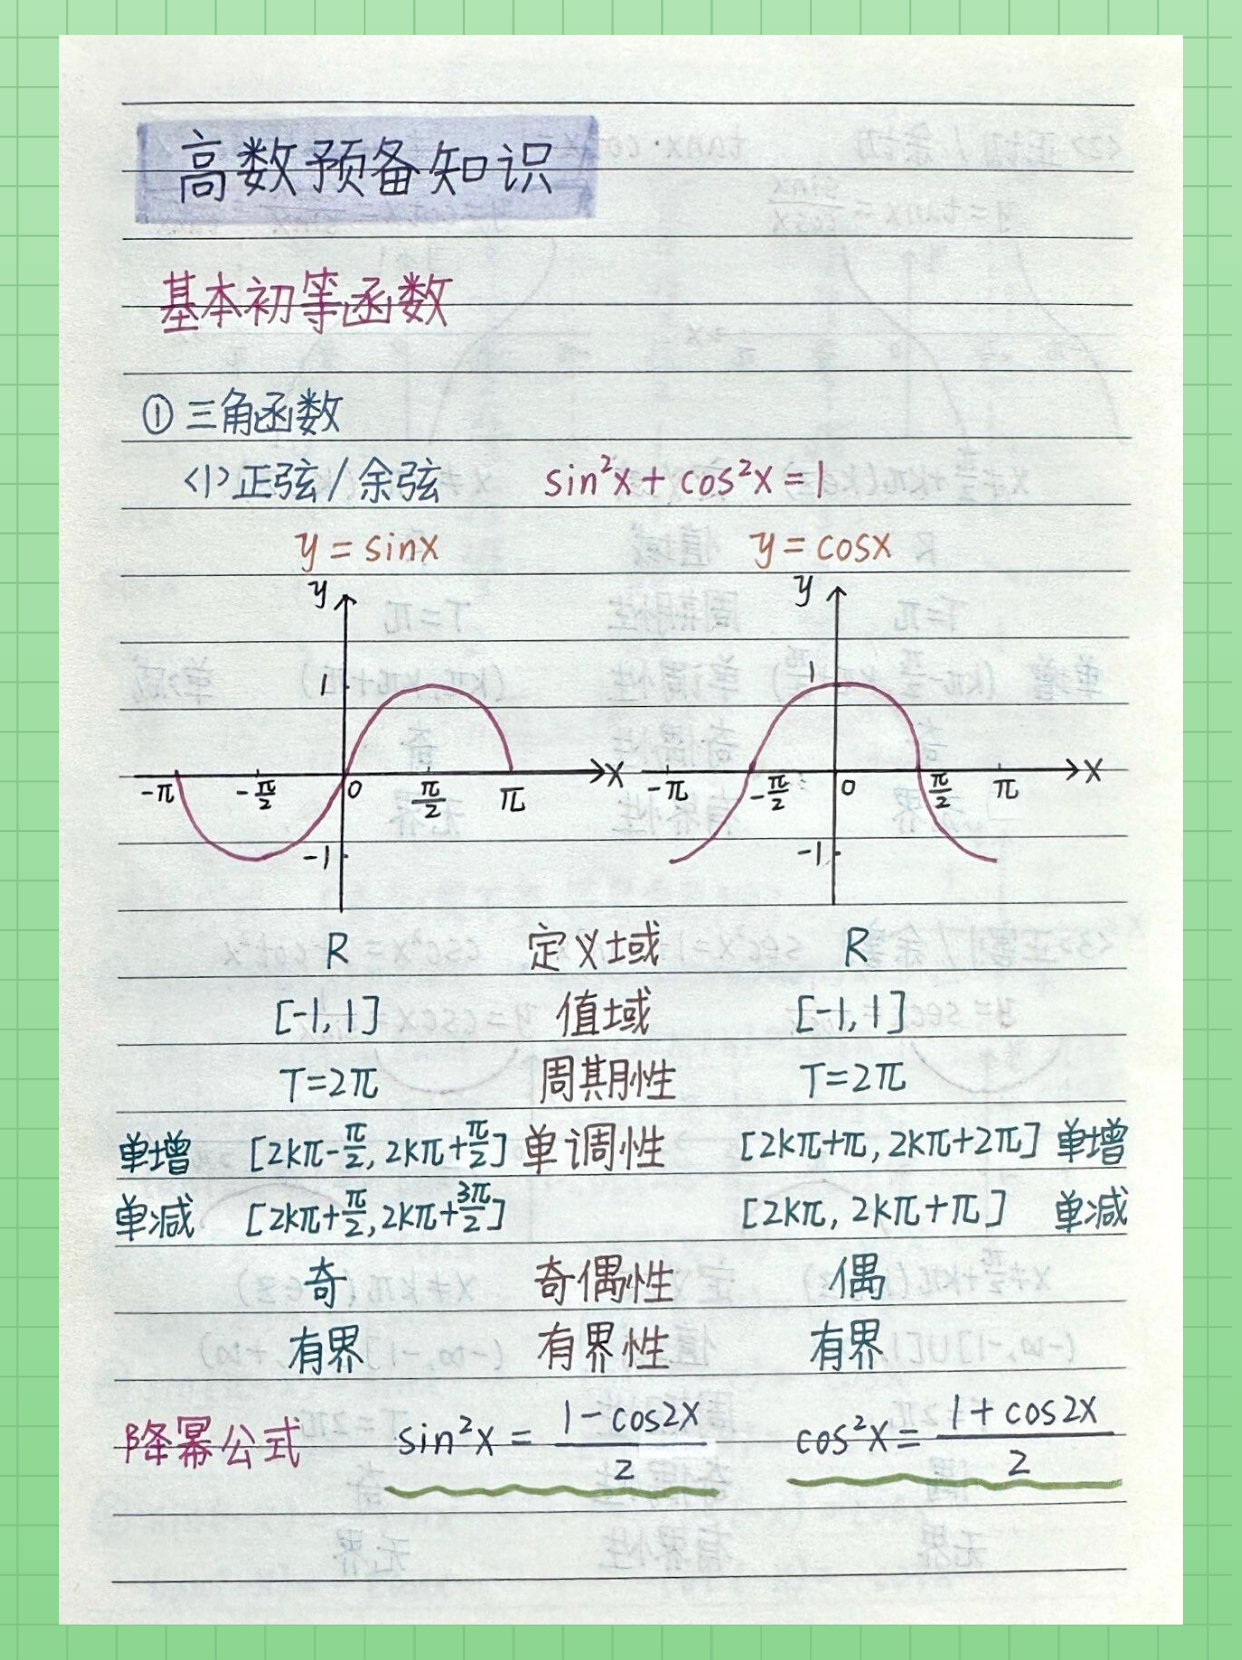 高数预备知识
基本初等函数
① 三角函数
<1> 正弦/余弦 sin²x + cos²x = 1
y = sinx y = cosx
y y
1 1
-π -π/2 0 π/2 π x -π -π/2 0 π/2 π x
-1 -1
R 定义域 R
[-1, 1] 值域 [-1, 1]
T=2π 周期性 T=2π
单增 [2kπ-π/2, 2kπ+π/2] 单调性 [2kπ+π, 2kπ+2π] 单增
单减 [2kπ+π/2, 2kπ+3π/2] [2kπ, 2kπ+π] 单减
奇 奇偶性 偶
有界 有界性 有界
降幂公式 sin²x = (1-cos2x)/2 cos²x = (1+cos2x)/2